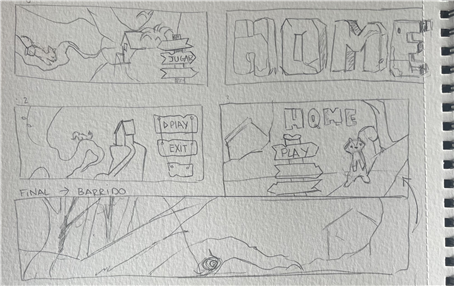 JUGAR
HOME
2
PLAY
EXIT
HOME
PLAY
FINAL → BARRIDO